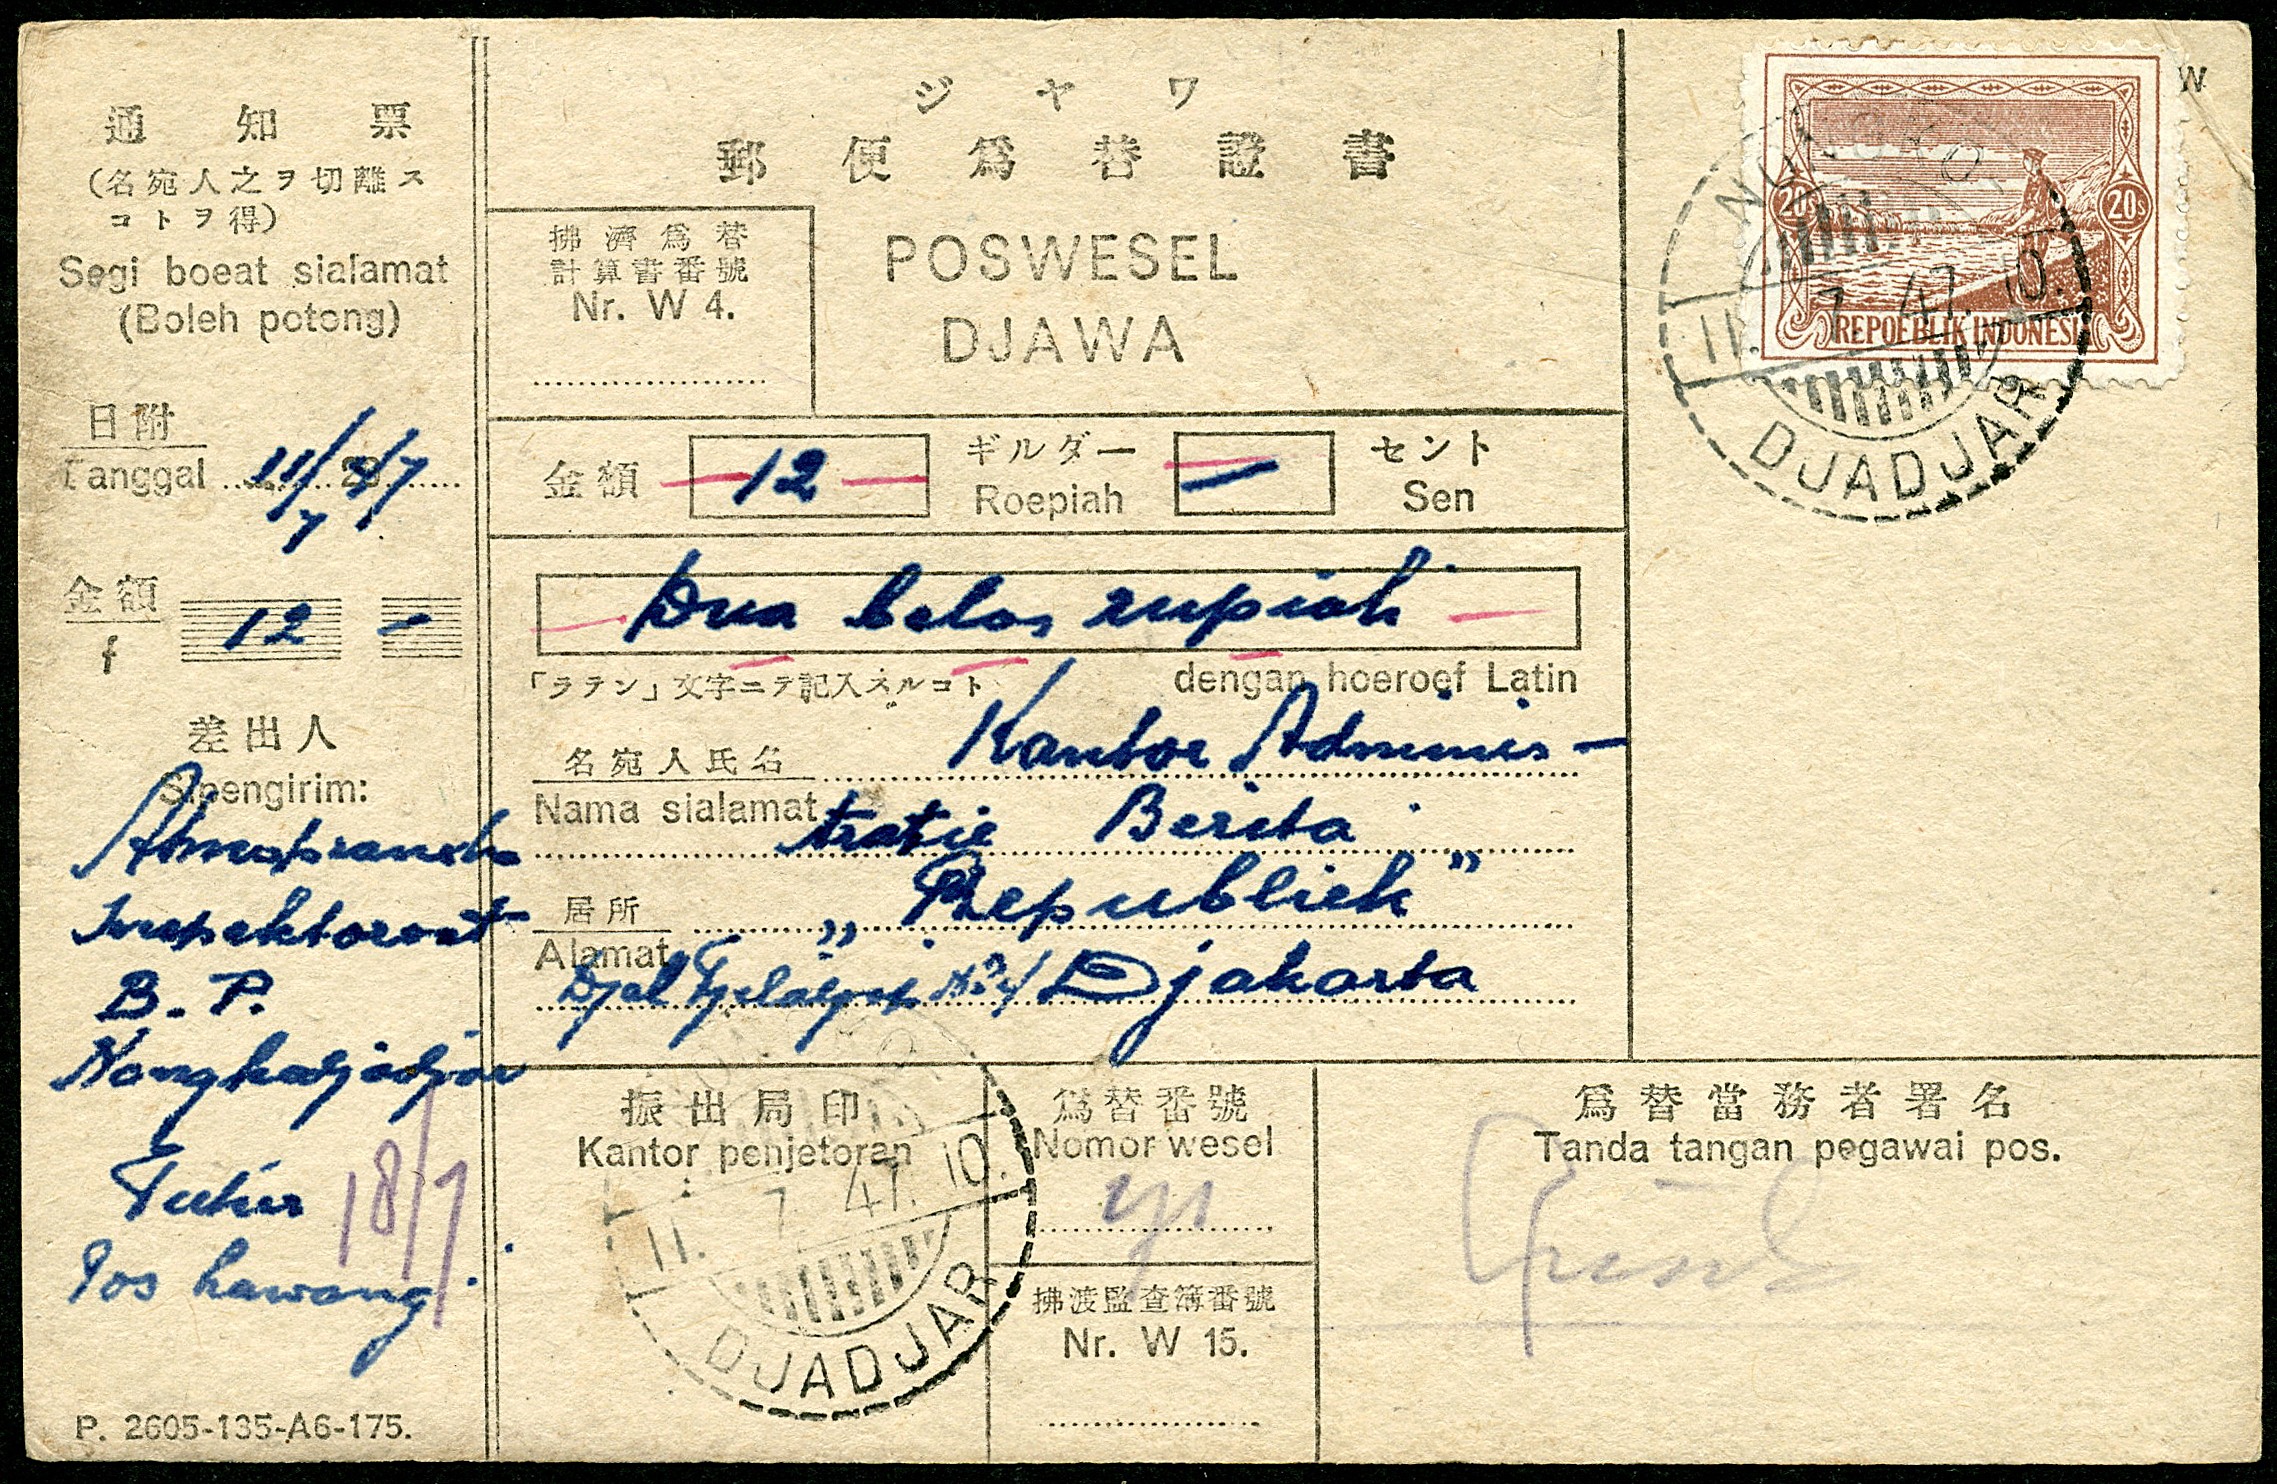 通知票
(名宛人之ヲ切離ス
コトヲ得)
Segi boeat sialamat
(Boleh potong)
日附
Tanggal 11/7 47
金額
f 12 —
差出人
Sipengirim:
B. P.
Nongkadjadjar
Tutur
Pos Lawang
18/7
P. 2605-135-A6-175.
ジヤワ
郵便爲替證書
POSWESEL
DJAWA
拂濟爲替
計算書番號
Nr. W 4.
金額 — 12 — ギルダー — セント
Roepiah Sen
— Dua belas rupiah —
「ラテン」文字ニテ記入スルコト dengan hoeroef Latin
名宛人氏名 Kantor Adminis-
Nama sialamat tratie Berita
居所 „Republiek"
Alamat
Djakarta
振出局印
Kantor penjetoran
11. 7. 47. 10.
DJADJAR
爲替番號
Nomor wesel
拂渡監査簿番號
Nr. W 15.
爲替當務者署名
Tanda tangan pegawai pos.
W
20s 20s
REPOEBLIK INDONESIA
11. 7. 47. 10.
DJADJAR